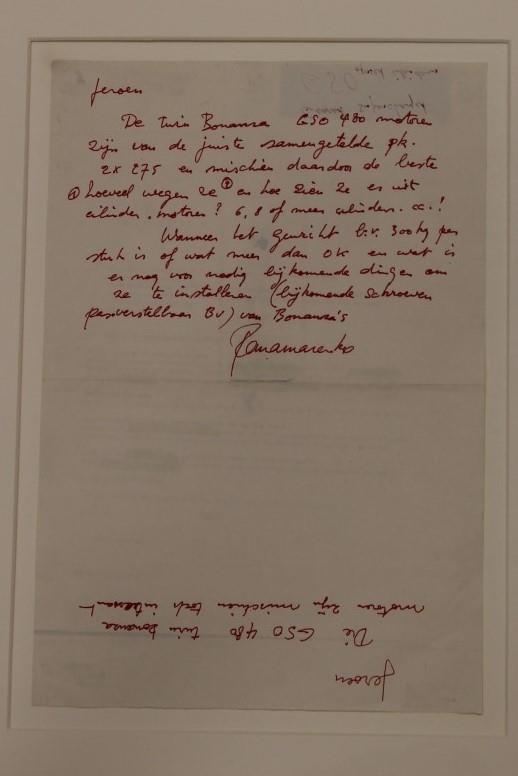 Jeroen
De twin Bonanza GSO 480 motoren
zijn van de juiste samengetelde pk.
2x 275 en mischien daardoor de beste
① hoeveel wegen ze ① en hoe zien ze er uit
cilinder, motoren? 6, 8 of meer cilinders.
Wanneer het gewicht b.v. 300 kg per
stuk is of wat meer dan OK en wat is
er nog voor nodig bijkomende dingen om
ze te installeren (bijkomende schroeven
pasverstelbaar BV) van Bonanza's
Panamarenko
Jeroen
Die GSO 480 twin bonanza
motoren zijn mischien toch interesant